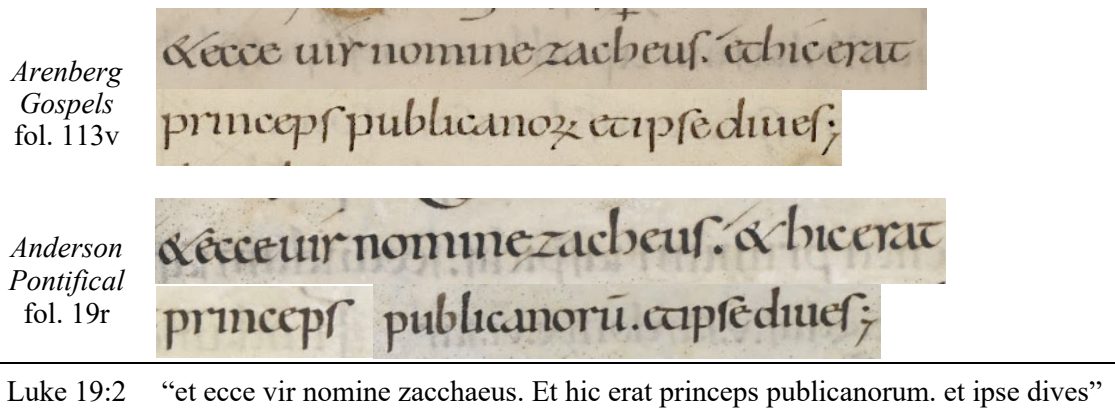 Arenberg
Gospels
fol. 113v
&ecce uir nomine zacheuſ. ethic erat
princepſ publicanoꝝ etipſe diueſ;
Anderson
Pontifical
fol. 19r
&ecce uir nomine zacheuſ. & hic erat
princepſ publicanorū. etipſe diueſ;
Luke 19:2 “et ecce vir nomine zacchaeus. Et hic erat princeps publicanorum. et ipse dives”